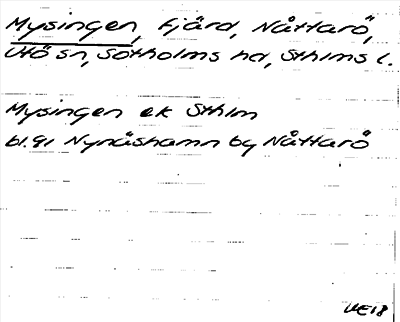 Mysingen, fjärd, Nåttarö,
Utö sn, Sotholms hd, Sthlms l.
Mysingen ek Sthlm
bl.91 Nynäshamn by Nåttarö